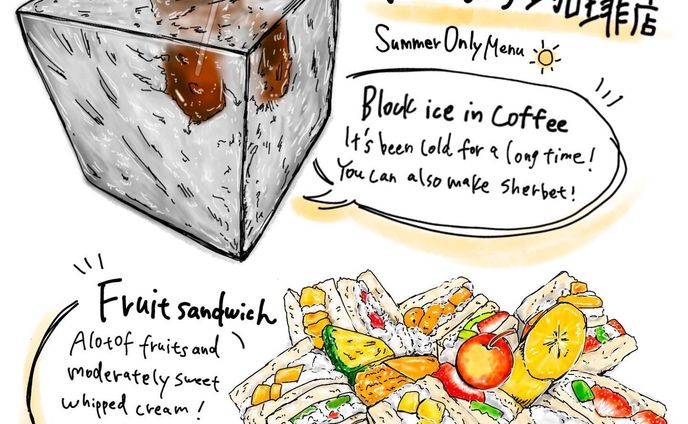 珈琲店
Summer Only Menu
Block ice in Coffee
It's been cold for a long time!
You can also make sherbet!
Fruit sandwich
A lot of fruits and
moderately sweet
whipped cream!